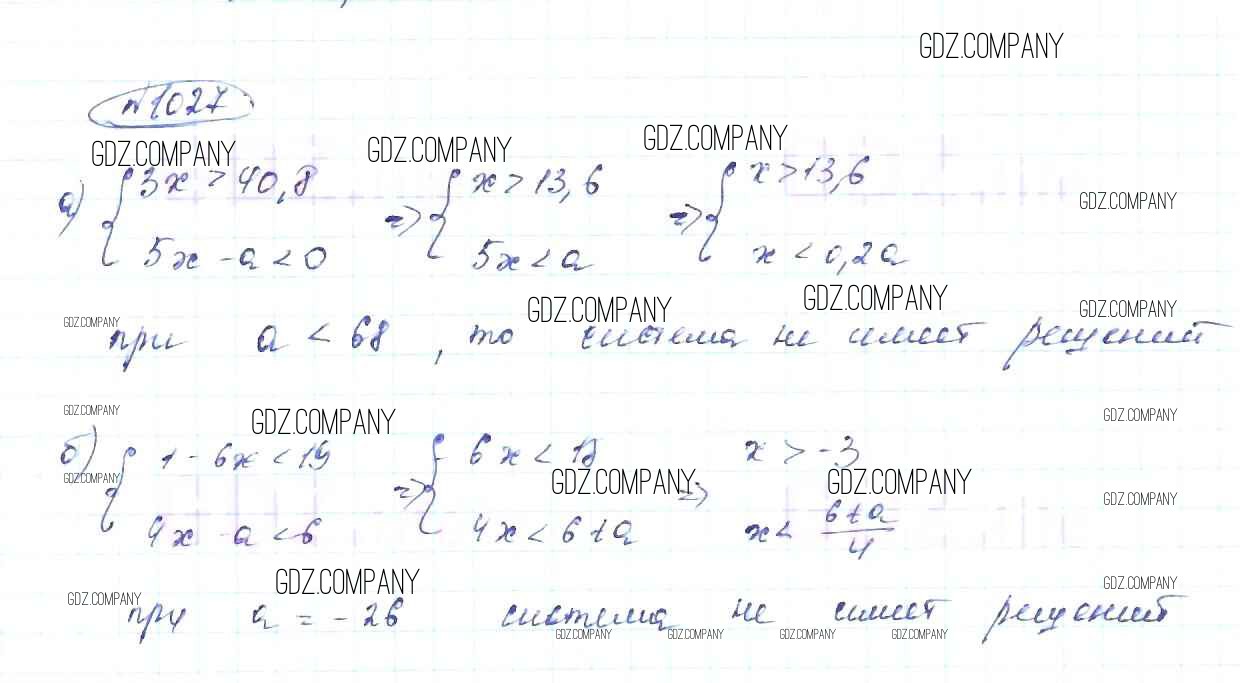 GDZ.COMPANY
№1027
GDZ.COMPANY GDZ.COMPANY GDZ.COMPANY
а) { 3x > 40,8 => { x > 13,6 => { x > 13,6
GDZ.COMPANY
5x - a < 0 5x < a x < 0,2a
GDZ.COMPANY GDZ.COMPANY GDZ.COMPANY GDZ.COMPANY
при a < 68, то система не имеет решений
GDZ.COMPANY GDZ.COMPANY GDZ.COMPANY
б) { 1 - 6x < 19 => { 6x < 18 => x > -3
GDZ.COMPANY GDZ.COMPANY GDZ.COMPANY GDZ.COMPANY
4x - a < 6 4x < 6 + a x < 6+a/4
GDZ.COMPANY GDZ.COMPANY GDZ.COMPANY
при a = -26 система не имеет решений
GDZ.COMPANY GDZ.COMPANY GDZ.COMPANY GDZ.COMPANY